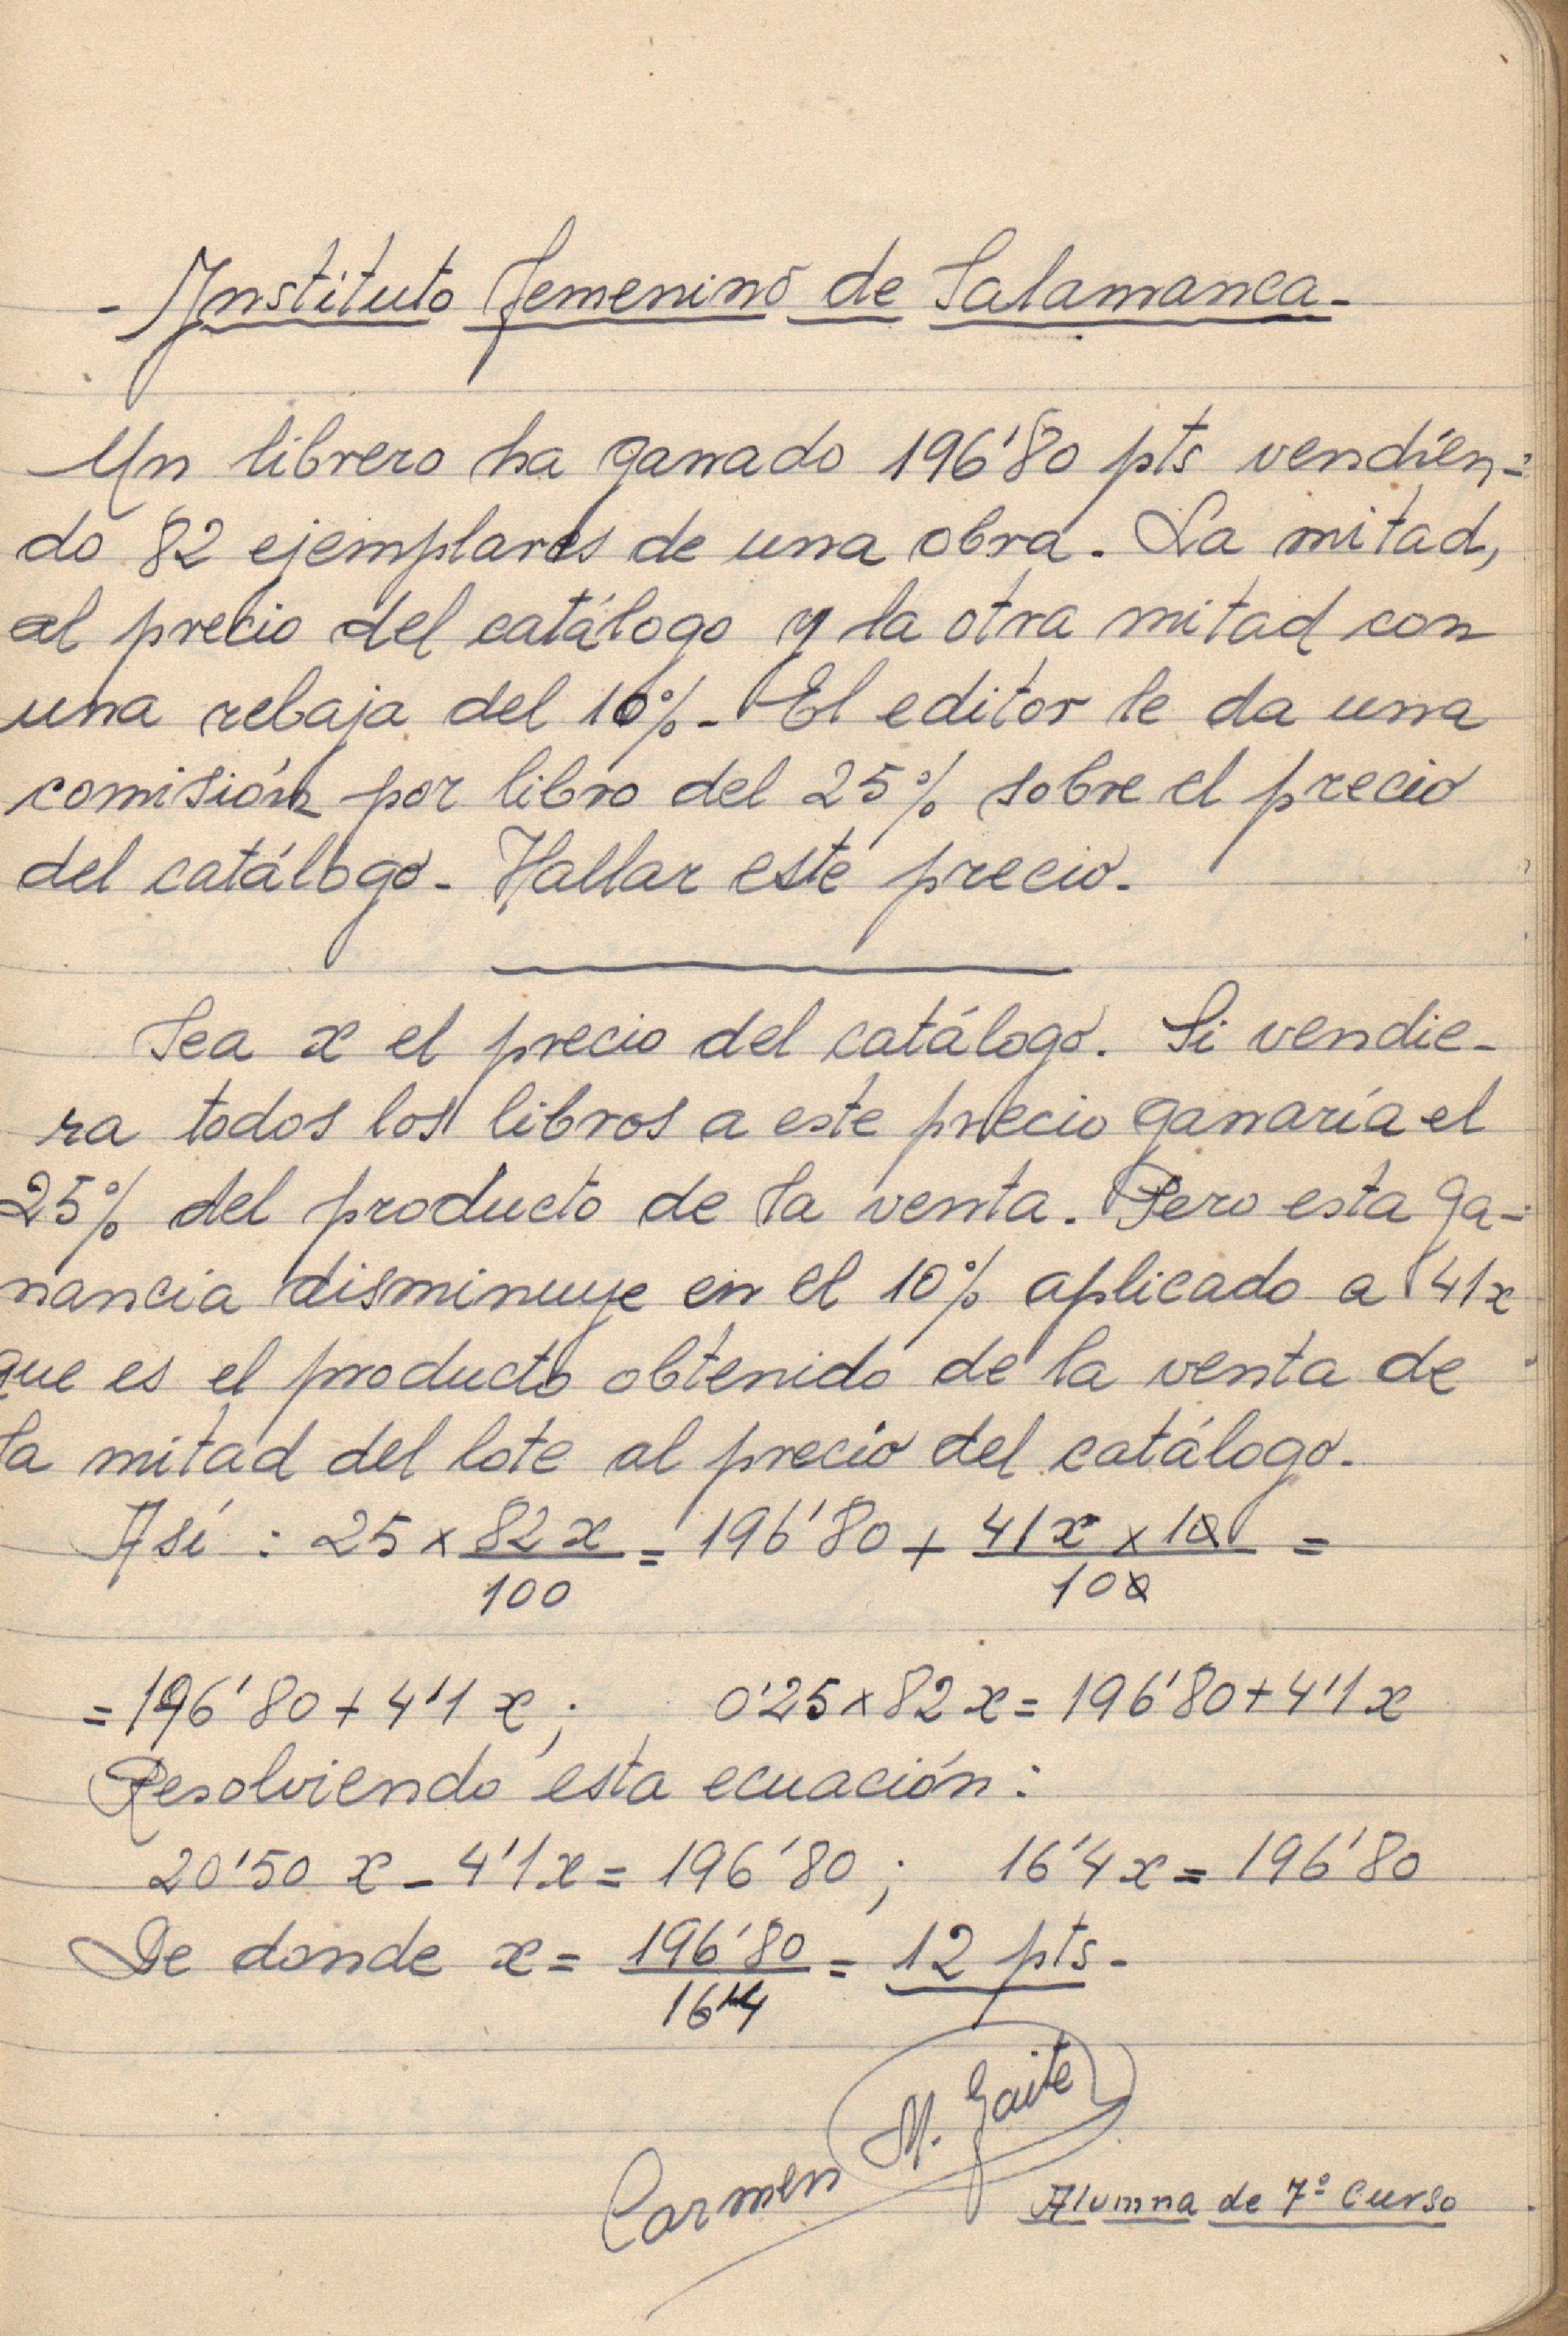 - Instituto Femenino de Salamanca -
Un librero ha ganado 196'80 pts vendien-
do 82 ejemplares de una obra. La mitad,
al precio del catálogo y la otra mitad con
una rebaja del 10%- El editor le da una
comisión por libro del 25% sobre el precio
del catálogo- Hallar este precio.
Sea x el precio del catálogo. Si vendie-
ra todos los libros a este precio ganaría el
25% del producto de la venta. Pero esta ga-
nancia disminuye en el 10% aplicado a 41x
que es el producto obtenido de la venta de
la mitad del lote al precio del catálogo.
Así : 25 × 82x/100 = 196'80 + 41x × 10/100 =
= 196'80 + 4'1 x ; 0'25 × 82 x = 196'80 + 4'1 x
Resolviendo esta ecuación :
20'50 x - 4'1x = 196'80 ; 16'4 x = 196'80
De donde x = 196'80/16'4 = 12 pts-
Carmen M. Gaite
Alumna de 7º curso